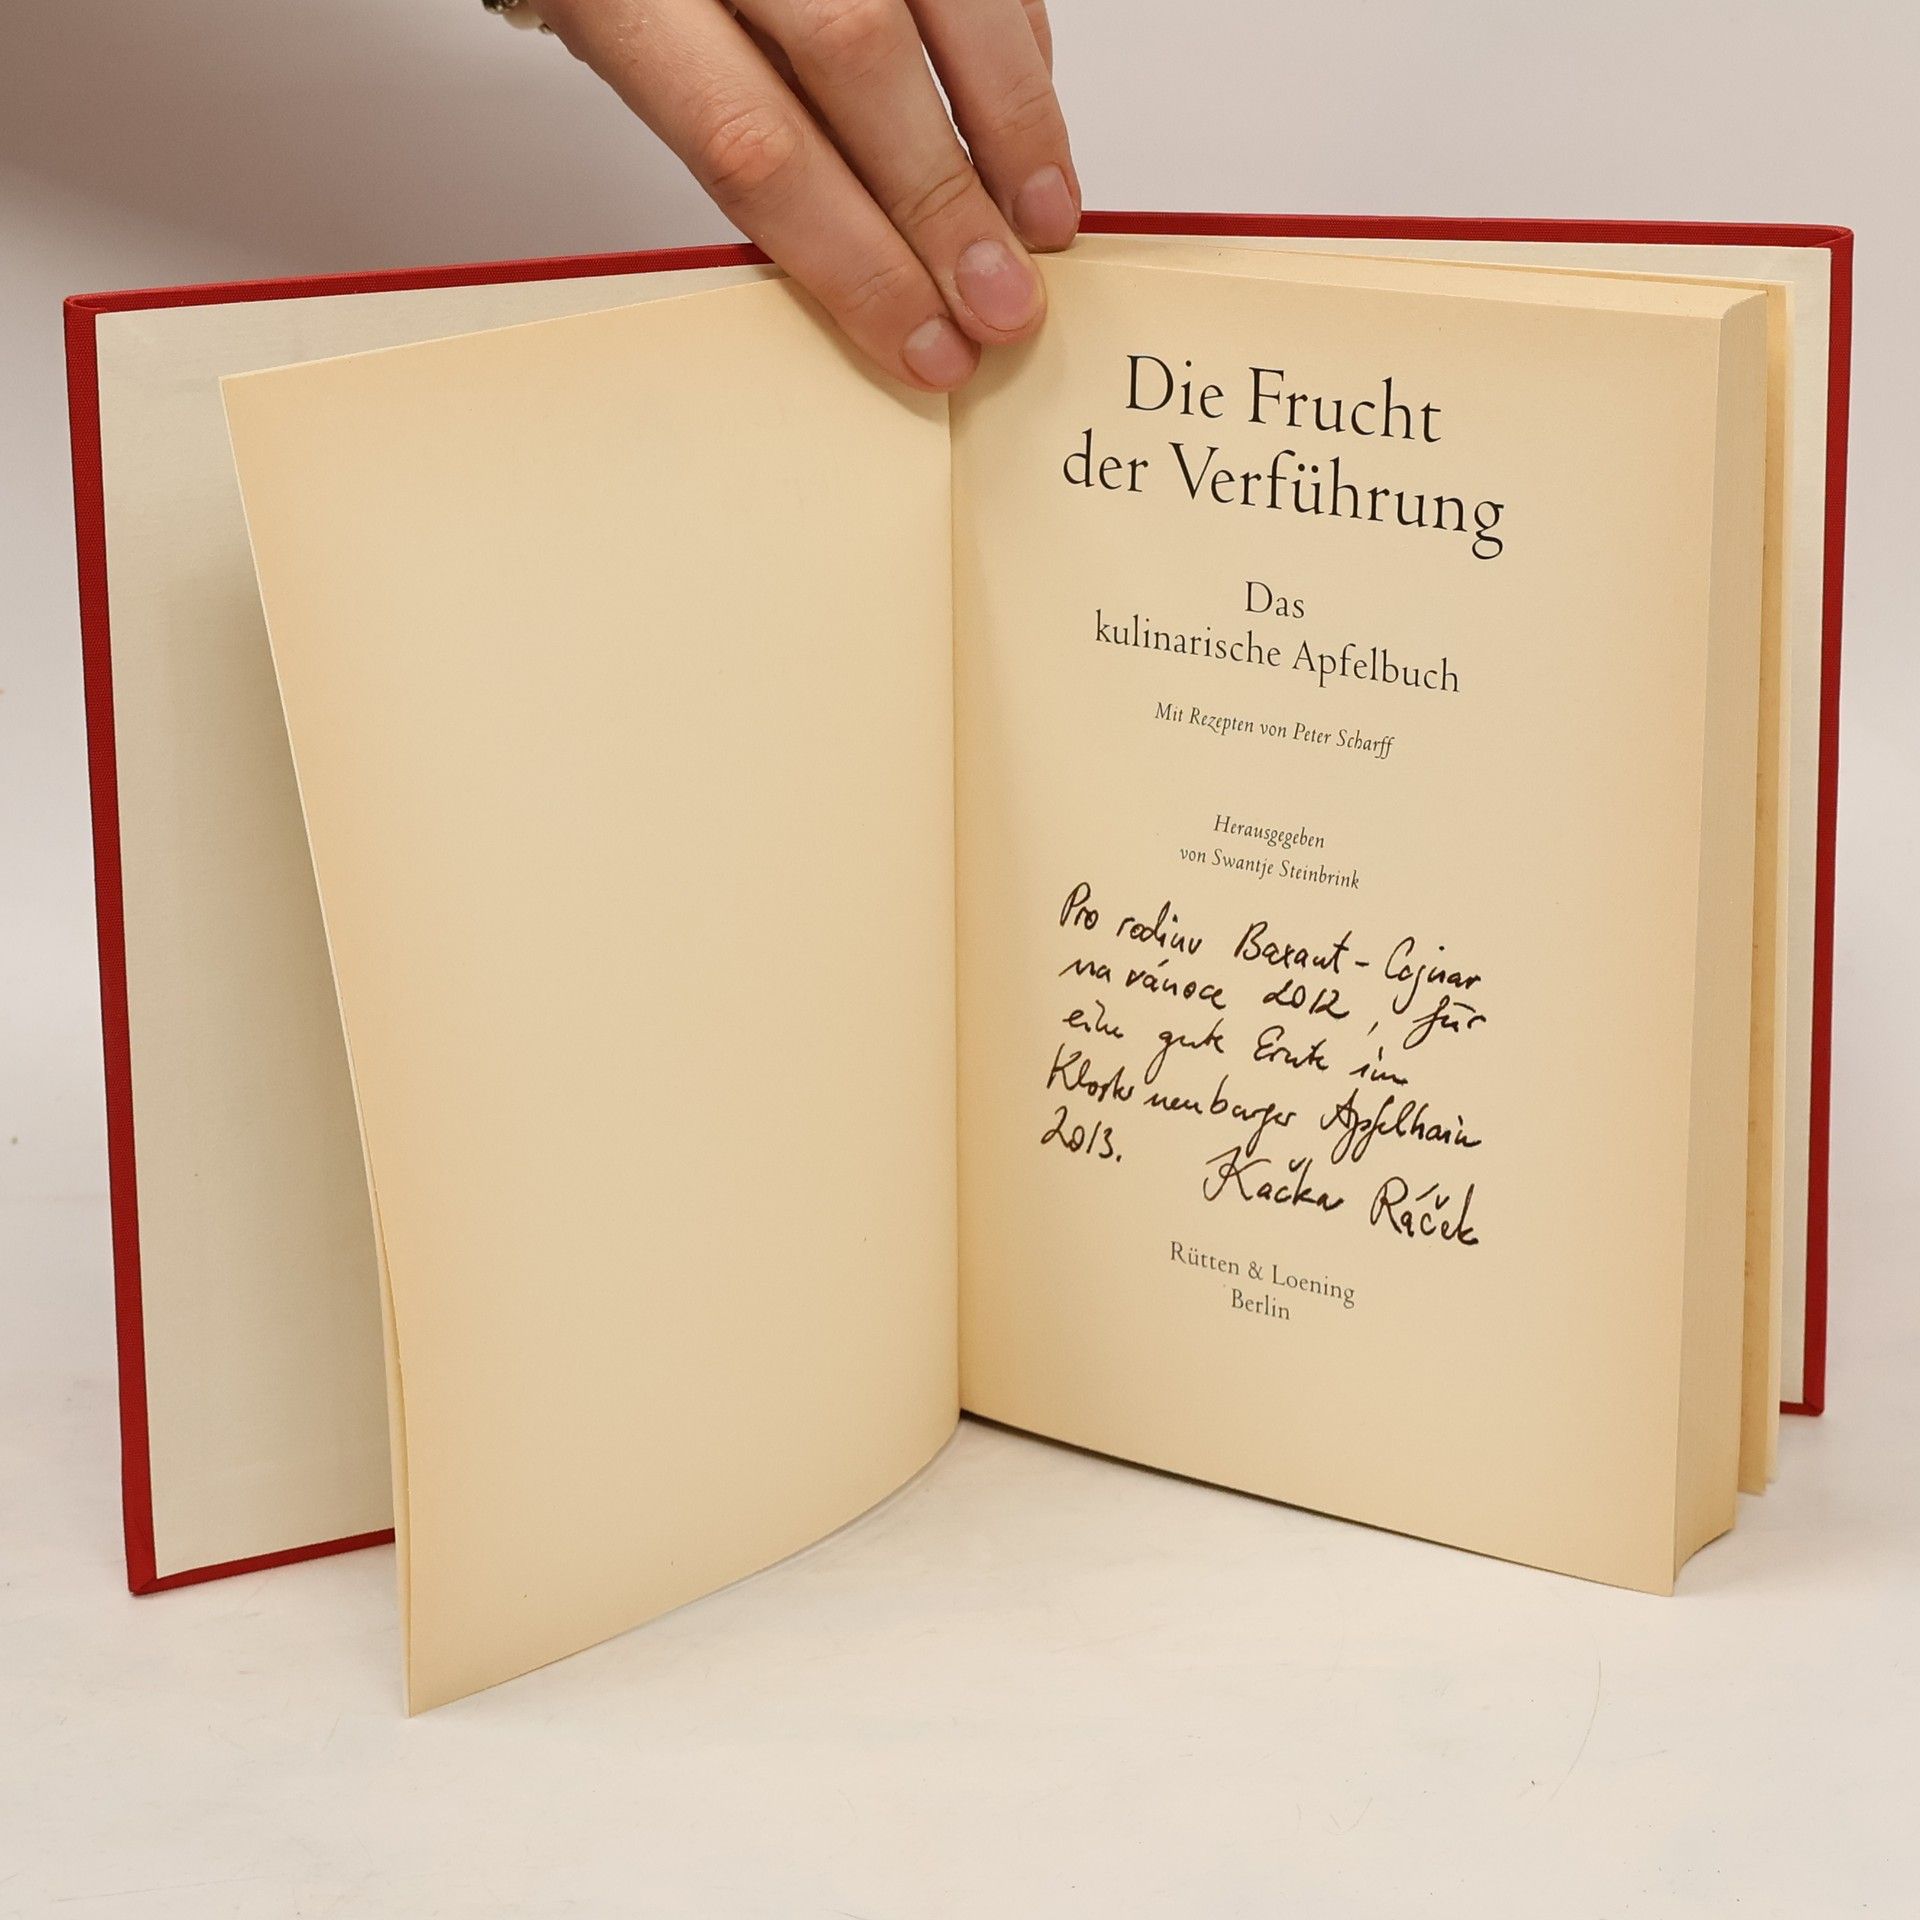 Die Frucht
der Verführung
Das
kulinarische Apfelbuch
Mit Rezepten von Peter Scharff
Herausgegeben
von Swantje Steinbrink
Pro rodinu Baxant-Cejnar
na vánoce 2012, für
eine gute Ernte im
Klosterneuburger Apfelhain
2013. Kačka Ráček
Rütten & Loening
Berlin